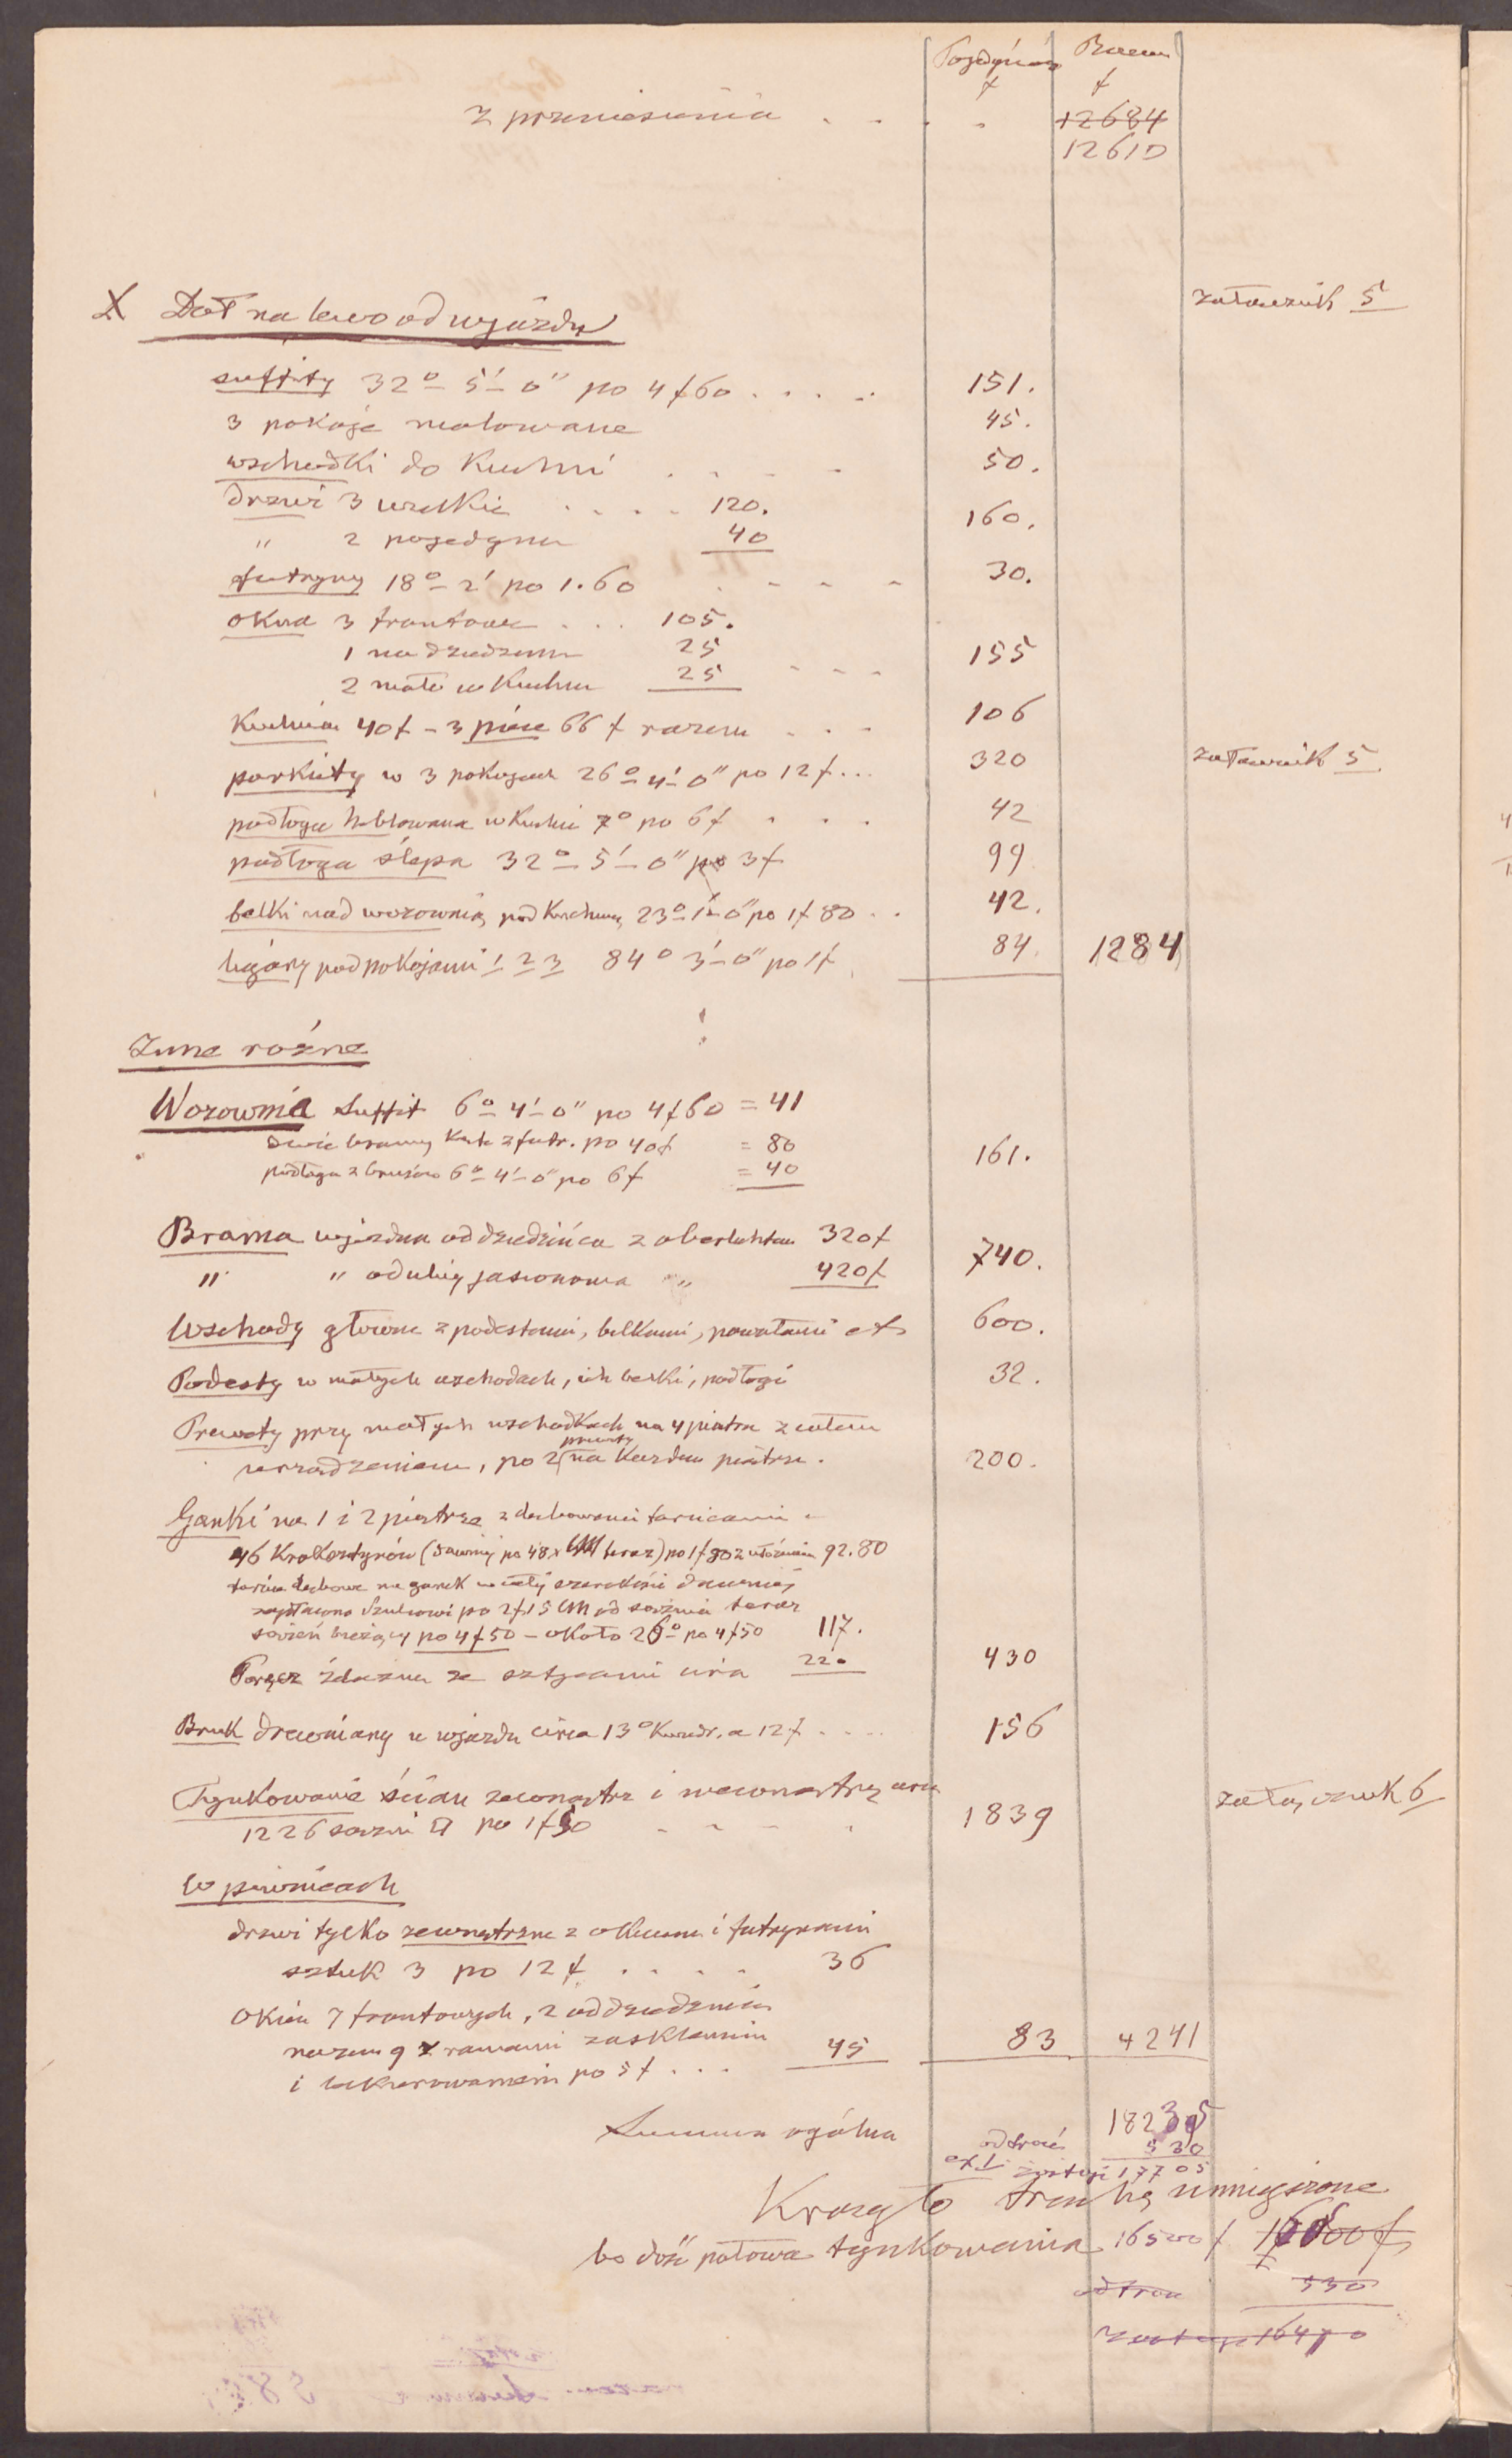 Pojedyńcz Razem
f f
z przeniesienia . . . . 12684
12610
X Dół na lewo od wjazdu załącznik 5
suffity 32° 5' 0" po 4 f 60 . . . . . 151.
3 pokoje malowane 45.
wschodki do kuchni . . . . 50.
drzwi 3 wielkie . . . . 120.
" 2 pojedyncze 40 160.
futryny 18° 2' po 1.60 . . . . 30.
okna 3 frontowe . . . 105.
1 na dziedziniec 25
2 małe w kuchni 25 . . . 155
Kuchnia 40 f – 3 piece 66 f razem . . . 106
parkiety w 3 pokojach 26° 4' 0" po 12 f . . . 320 załącznik 5
podłoga heblowana w kuchni 7° po 6 f . . . 42
podłoga ślepa 32° 5' 0" po 3 f 99
belki nad wozownią, pod kuchnią 23° 1' 0" po 1 f 80 . . 42.
legary pod pokojami 1 2 3 84° 3' 0" po 1 f 84. 1284
Inne rożne
Wozownia Suffit 6° 4' 0" po 4 f 60 = 41
dwie bramy z futr. po 40 f = 80
podłoga z brusów 6° 4' 0" po 6 f = 40 161.
Brama wjezdna od dziedzińca z oberluhtem 320 f
" " od ulicy jasionowa " 420 f 740.
Wschody główne z podestami, belkami, powałami et 600.
Podesty w małych wschodach, ich belki, podłogi 32.
Prewety przy małych wschodkach na 4 piętra z całem
urządzeniem, po 2 prewety na każdem piętrze. 200.
Ganki na 1 i 2 piętrze z dębowemi tarnicami
46 Kroksztynów (dawniej po 48 teraz) po 1 f 80 z włożeniem 92.80
tarnice dębowe na ganek w całej szerokości dawniej
zapłacono po 2 f 15 od sążnia teraz
sążeń bieżący po 4 f 50 – około 26° po 4 f 50 117.
Poręcz żelazna ze sztycami circa 220 430
Bruk drewniany w wjazdu circa 13° Kwadr. a 12 f . . . 156
Tynkowanie ścian zewnątrz i wewnątrz circa załącznik 6
1226 sążni □ po 1 f 50 . . . . 1839
w piwnicach
drzwi tylko zewnętrzne z okuciem i futrynami
sztuk 3 po 12 f . . . . 36
okien 7 frontowych, 2 od dziedzińca
razem 9 z ramami zaszkleniem
i lakierowaniem po 5 f . . . 45 83 4241
Summa ogólna 18235
odtrącić 530
zostaje 17705
Krągło trochę zmniejszone
bo dość połowa tynkowania 16500 f
odtrąc 530
zostaje 16470